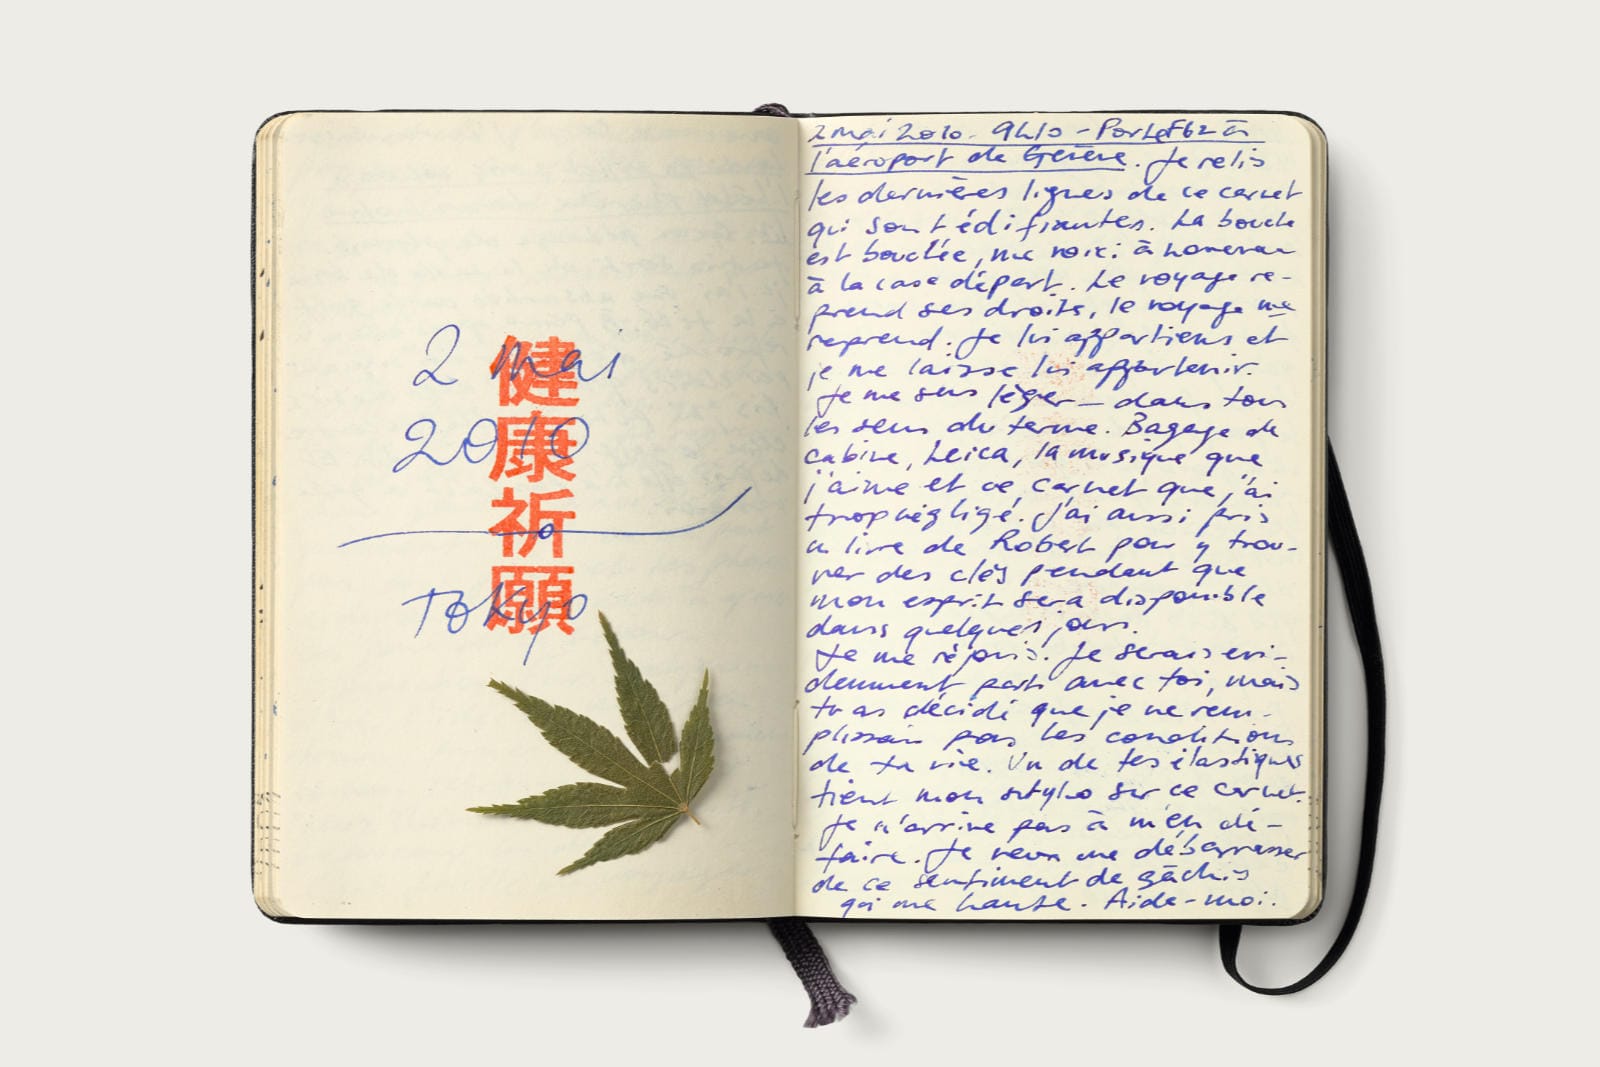 2 mai
2010
Tokyo
健康祈願
2 mai 2010. 9h10 - Porte F62 à
l'aéroport de Genève. Je relis
les dernières lignes de ce carnet
qui sont édifiantes. La boucle
est bouclée, me voici à nouveau
à la case départ. Le voyage re-
prend ses droits, le voyage me
reprend. Je lui appartiens et
je me laisse lui appartenir.
Je me sens léger — dans tous
les sens du terme. Bagage de
cabine, Leica, la musique que
j'aime et ce carnet que j'ai
trop négligé. J'ai aussi pris
un livre de Robert pour y trou-
ver des clés pendant que
mon esprit sera disponible
dans quelques jours.
Je me réjouis. Je serais évi-
demment parti avec toi, mais
tu as décidé que je ne rem-
plissais pas les conditions
de ta vie. Un de tes élastiques
tient mon stylo sur ce carnet.
Je n'arrive pas à m'en dé-
faire. Je veux me débarrasser
de ce sentiment de gâchis
qui me hante. Aide-moi.